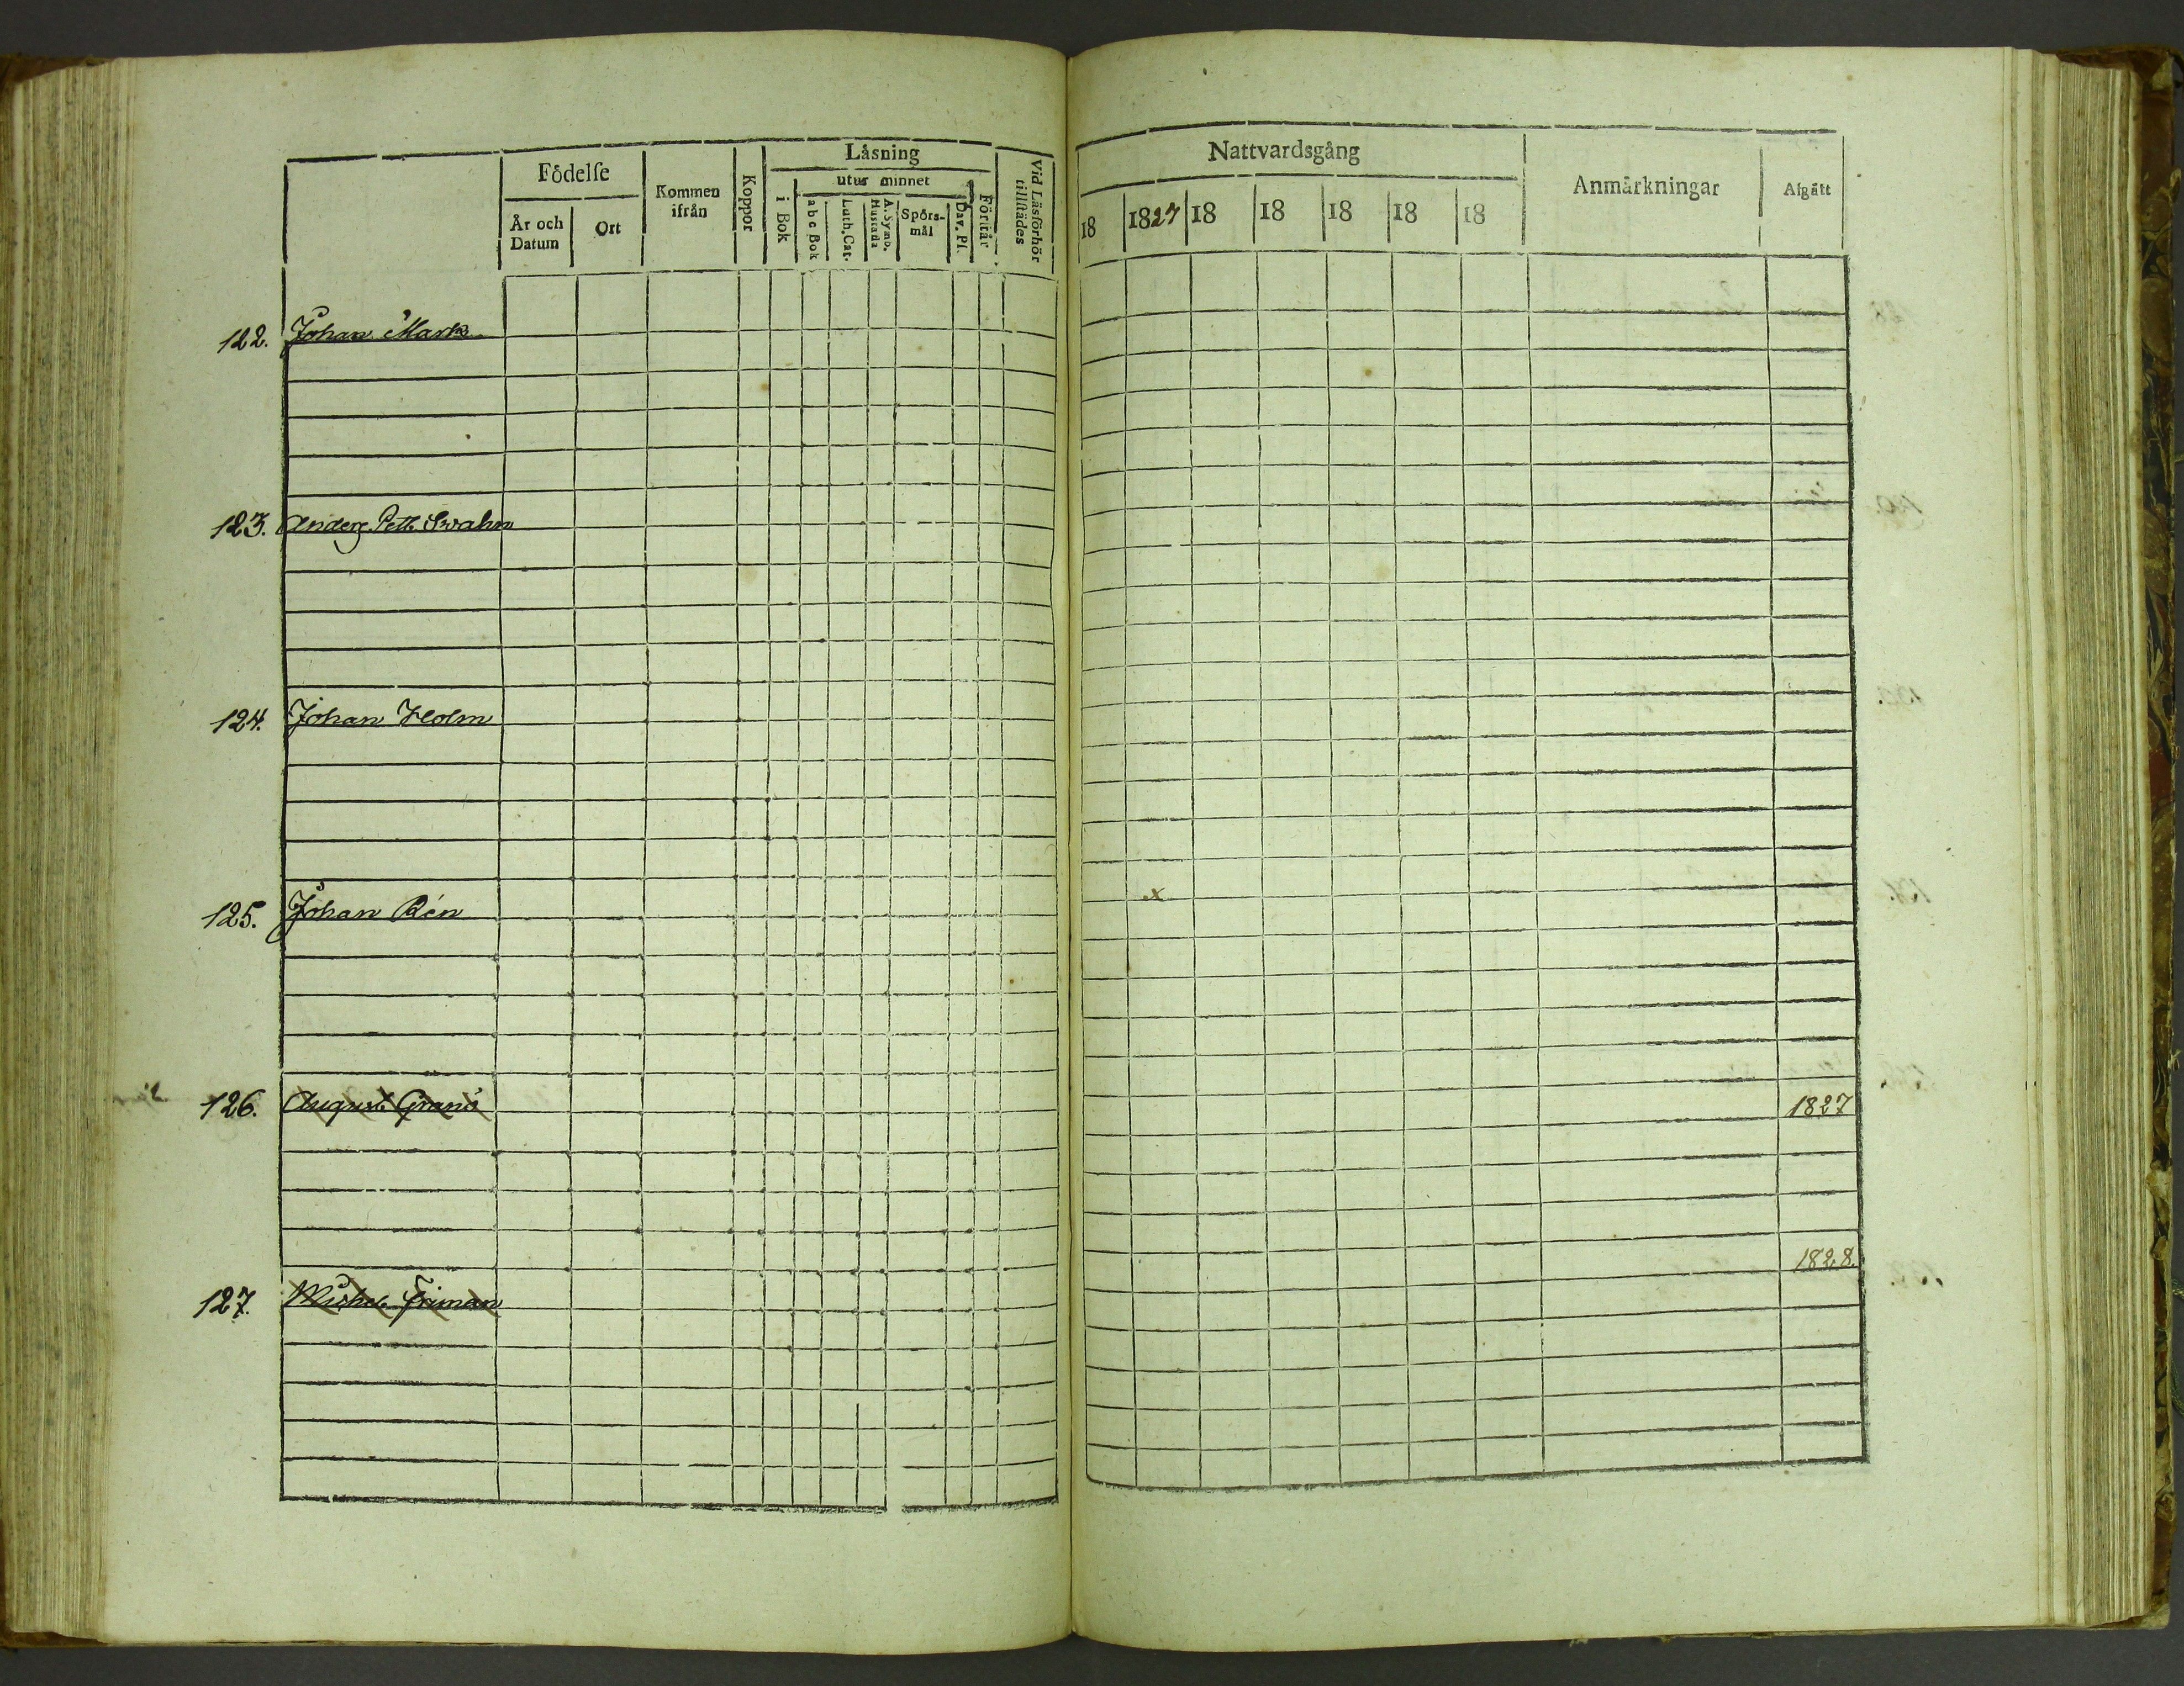 Födelſe
År och Datum
Ort
Kommen ifrån
Koppor
Låsning
utur minnet
i Bok
abc Bok
Luth. Cat.
A. Symb. Hustafla
Spörs-mål
Dav. Pſ.
Förſtår
Vid Läsförhör tillſtädes
Nattvardsgång
18 1827 18 18 18 18 18
Anmärkningar
Afgått
122. Johan Mark
123. Anders Pett. Svahn
124. Johan Holm
125. Johan Rén x
126. August Granö 1827
1828.
127. Michel Friman